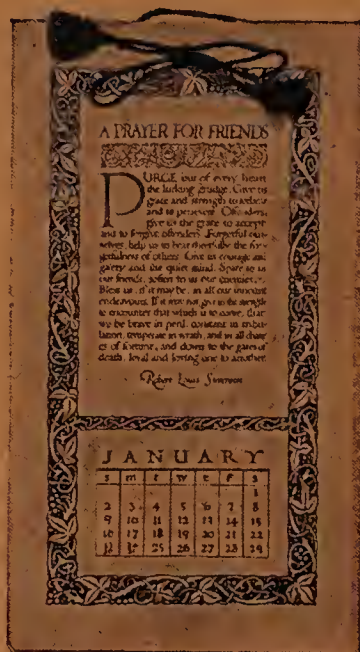 A PRAYER FOR FRIENDS
PURGE out of every heart
the lurking grudge. Give us
grace and strength to forbear
and to persevere. Offenders,
give us the grace to accept
and to forgive offenders. Forgetful our-
selves, help us to bear cheerfully the for-
getfulness of others. Give us courage and
gaiety and the quiet mind. Spare to us
our friends, soften to us our enemies.
Bless us, if it may be, in all our innocent
endeavours. If it may not, give us the strength
to encounter that which is to come, that
we be brave in peril, constant in tribu-
lation, temperate in wrath, and in all chang-
es of fortune, and down to the gates of
death, loyal and loving one to another.
Robert Louis Stevenson
JANUARY
S M T W T F S
1
2 3 4 5 6 7 8
9 10 11 12 13 14 15
16 17 18 19 20 21 22
25 26 27 28 29